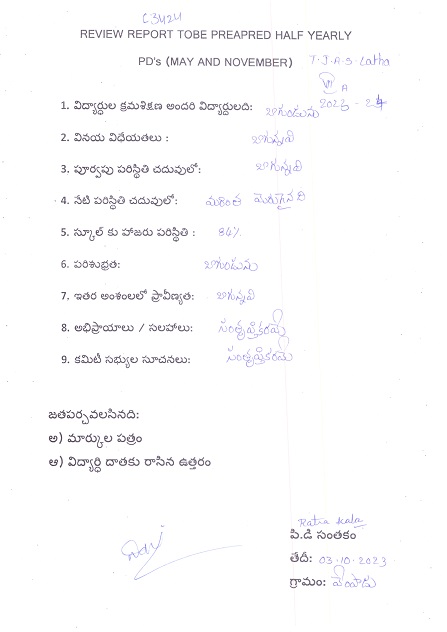 C3424
REVIEW REPORT TOBE PREAPRED HALF YEARLY
PD's (MAY AND NOVEMBER) T.J.A.S. Latha
VII A
2023 - 24
1. విద్యార్ధుల క్రమశిక్షణ అందరి విద్యార్ధులది: బాగుండును
2. వినయ విధేయతలు : బాగున్నవి
3. పూర్వపు పరిస్థితి చదువులో: బాగున్నవి
4. నేటి పరిస్థితి చదువులో: మరింత మెరుగైనది
5. స్కూల్ కు హాజరు పరిస్థితి : 84%
6. పరిశుభ్రత: బాగుండును
7. ఇతర అంశంలలో ప్రావీణ్యత: బాగున్నవి
8. అభిప్రాయాలు / సలహాలు: సంతృప్తికరమే
9. కమిటీ సభ్యుల సూచనలు: సంతృప్తికరమే
జతపర్చవలసినది:
అ) మార్కుల పత్రం
ఆ) విద్యార్ధి దాతకు రాసిన ఉత్తరం
Ratna kala
పి.డి సంతకం
తేదీ: 03-10-2023
గ్రామం: వేంపాడు